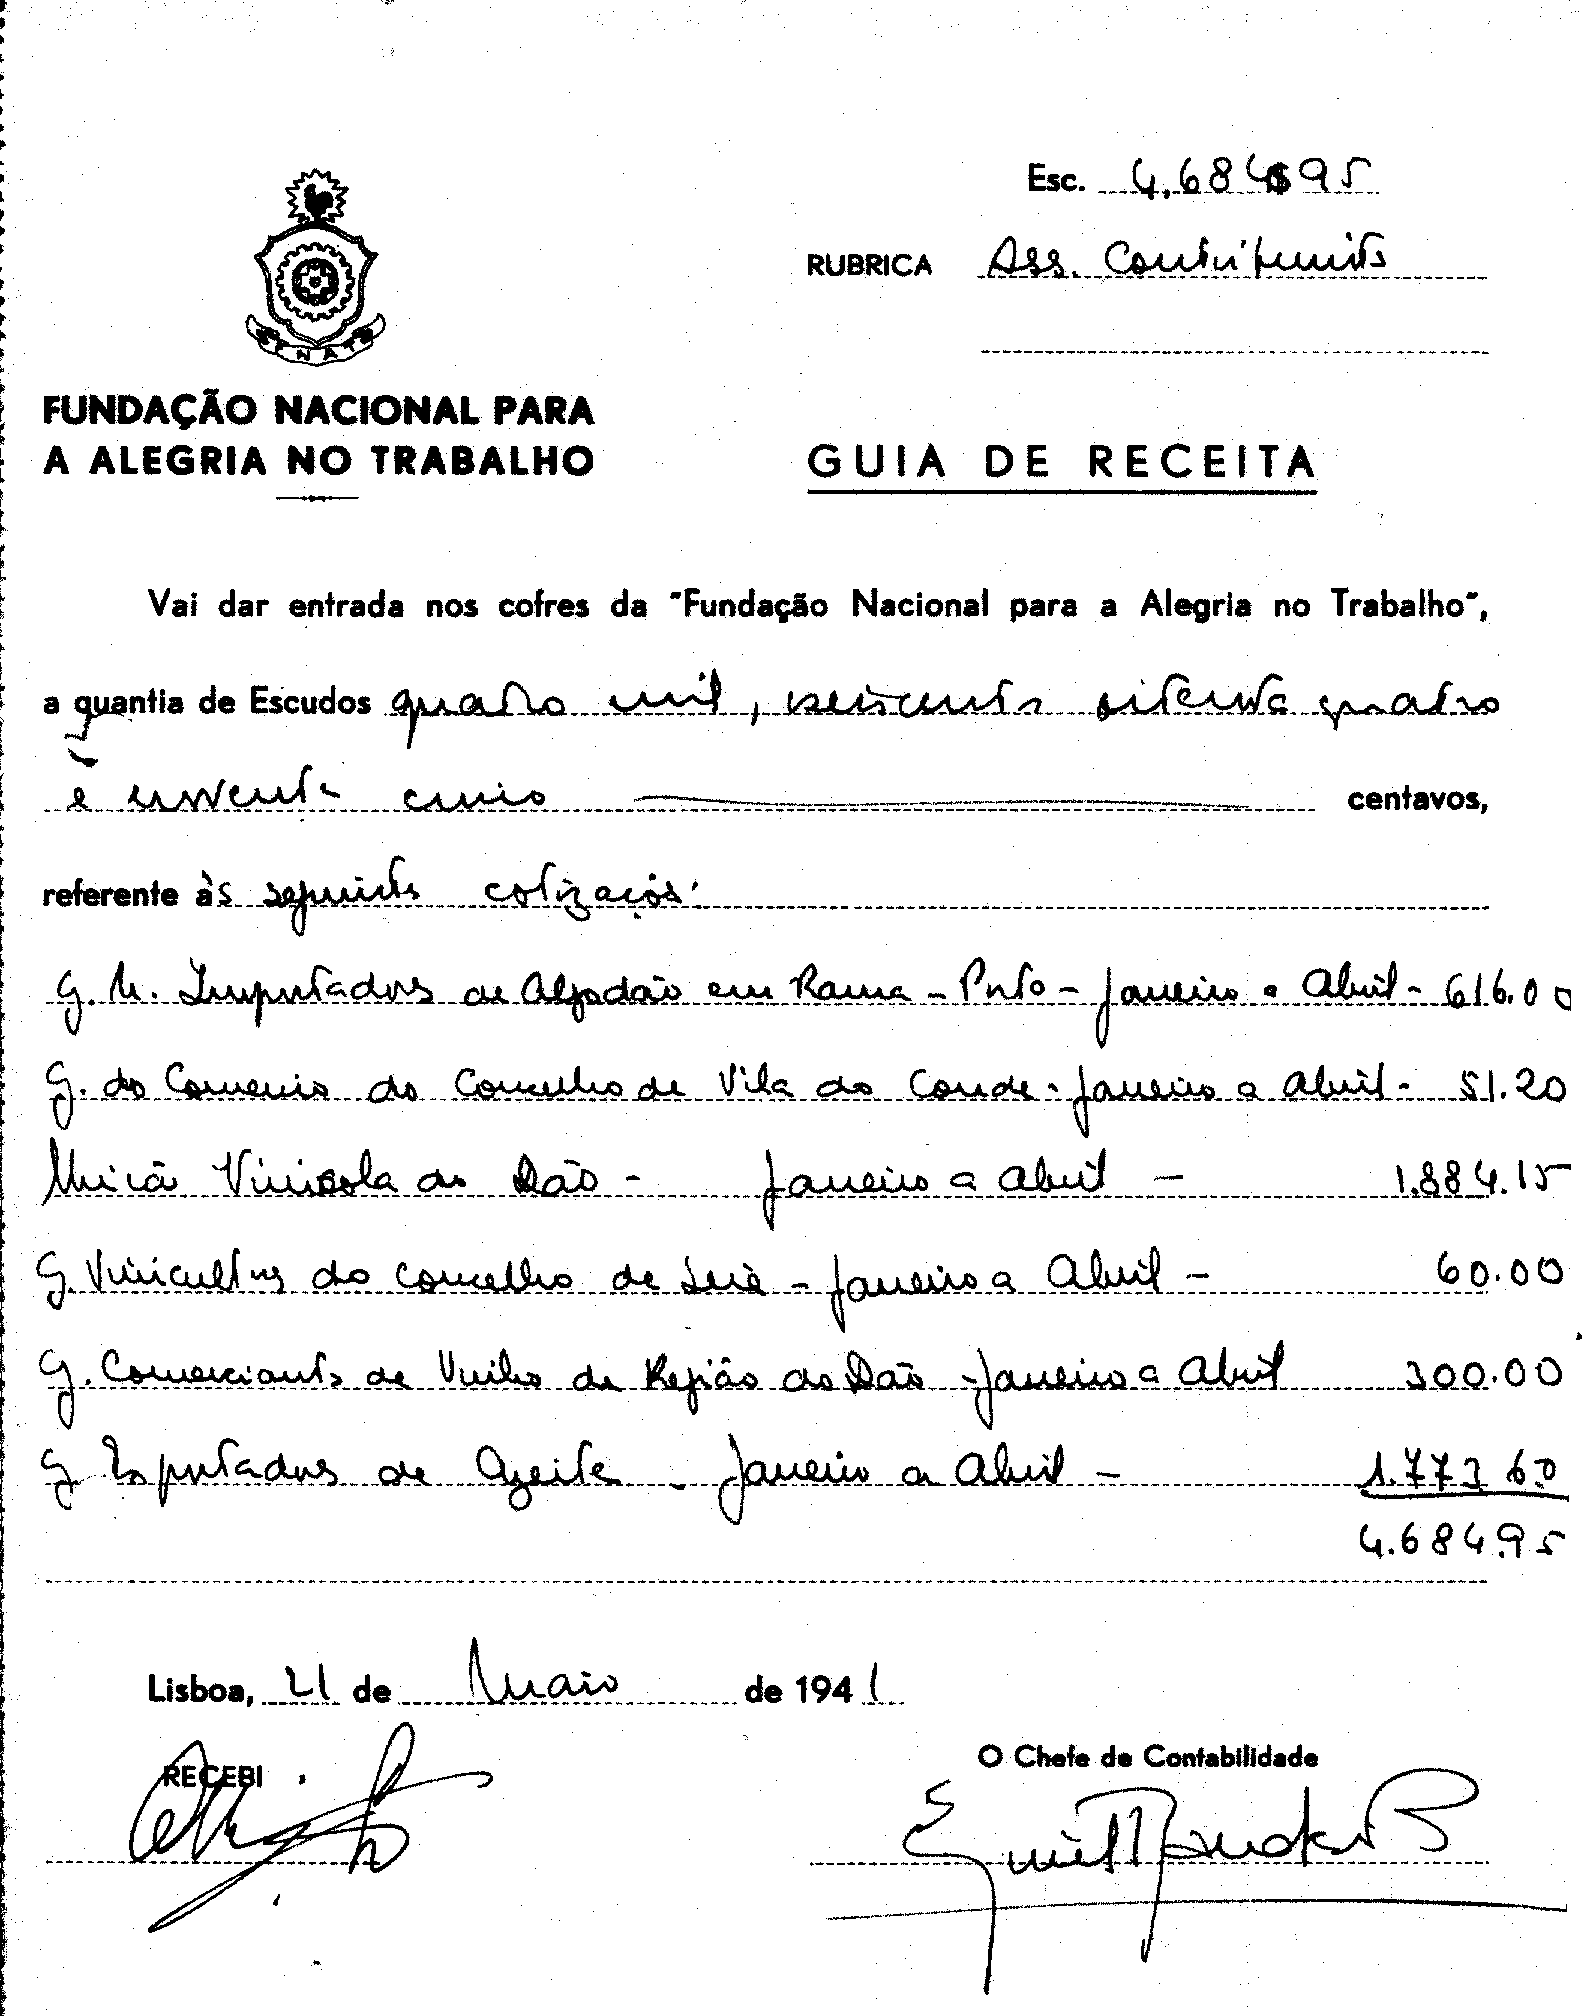 Esc. 4.684$95
RUBRICA Ass. Contribuintes
FNAT
FUNDAÇÃO NACIONAL PARA
A ALEGRIA NO TRABALHO
GUIA DE RECEITA
Vai dar entrada nos cofres da "Fundação Nacional para a Alegria no Trabalho",
a quantia de Escudos quatro mil, seiscentos oitenta quatro
e noventa cinco centavos,
referente às seguintes cotizações:
G. N. Importadores de Algodão em Rama - Porto - Janeiro a Abril - 616.00
G. do Comercio do Concelho de Vila do Conde - Janeiro a Abril - 51.20
União Vinicola do Dão - Janeiro a Abril - 1.884.15
G. Vinicultores do Concelho de - Janeiro a Abril - 60.00
G. Comerciantes de Vinho da Região do Dão - Janeiro a Abril 300.00
G. Exportadores de Azeite - Janeiro a Abril - 1.773 60
4.684.95
Lisboa, 21 de Maio de 1941
RECEBI
O Chefe de Contabilidade